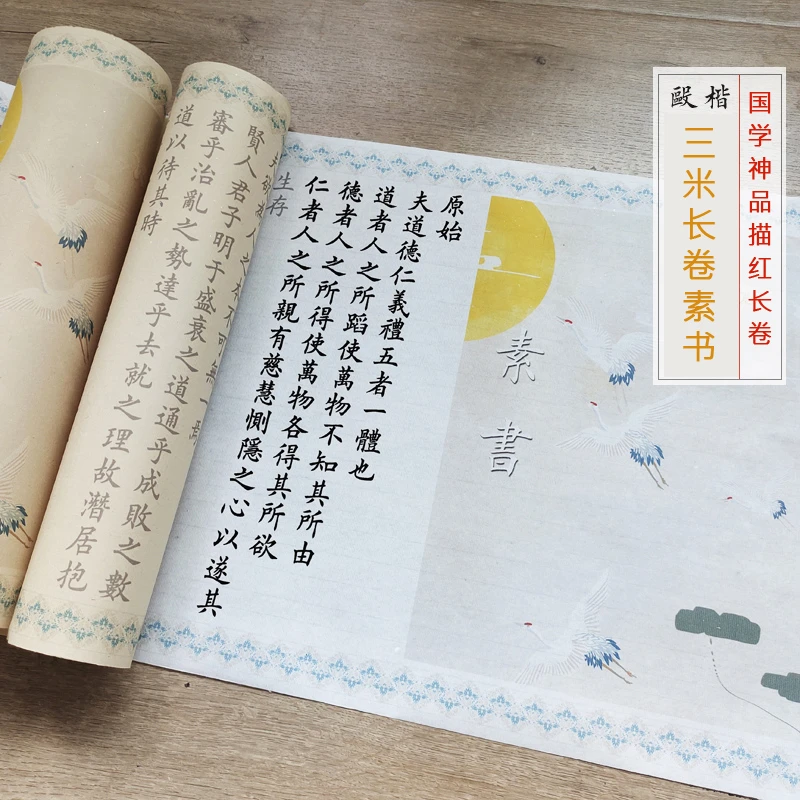 国学神品描红长卷
毆楷
三米长卷素书
素書
原始
夫道德仁義禮五者一體也
道者人之所蹈使萬物不知其所由
德者人之所得使萬物各得其所欲
仁者人之所親有慈慧惻隱之心以遂其
生存
人之本不可無一焉
賢人君子明于盛衰之道通乎成敗之數
審乎治亂之勢達乎去就之理故潛居抱
道以待其時